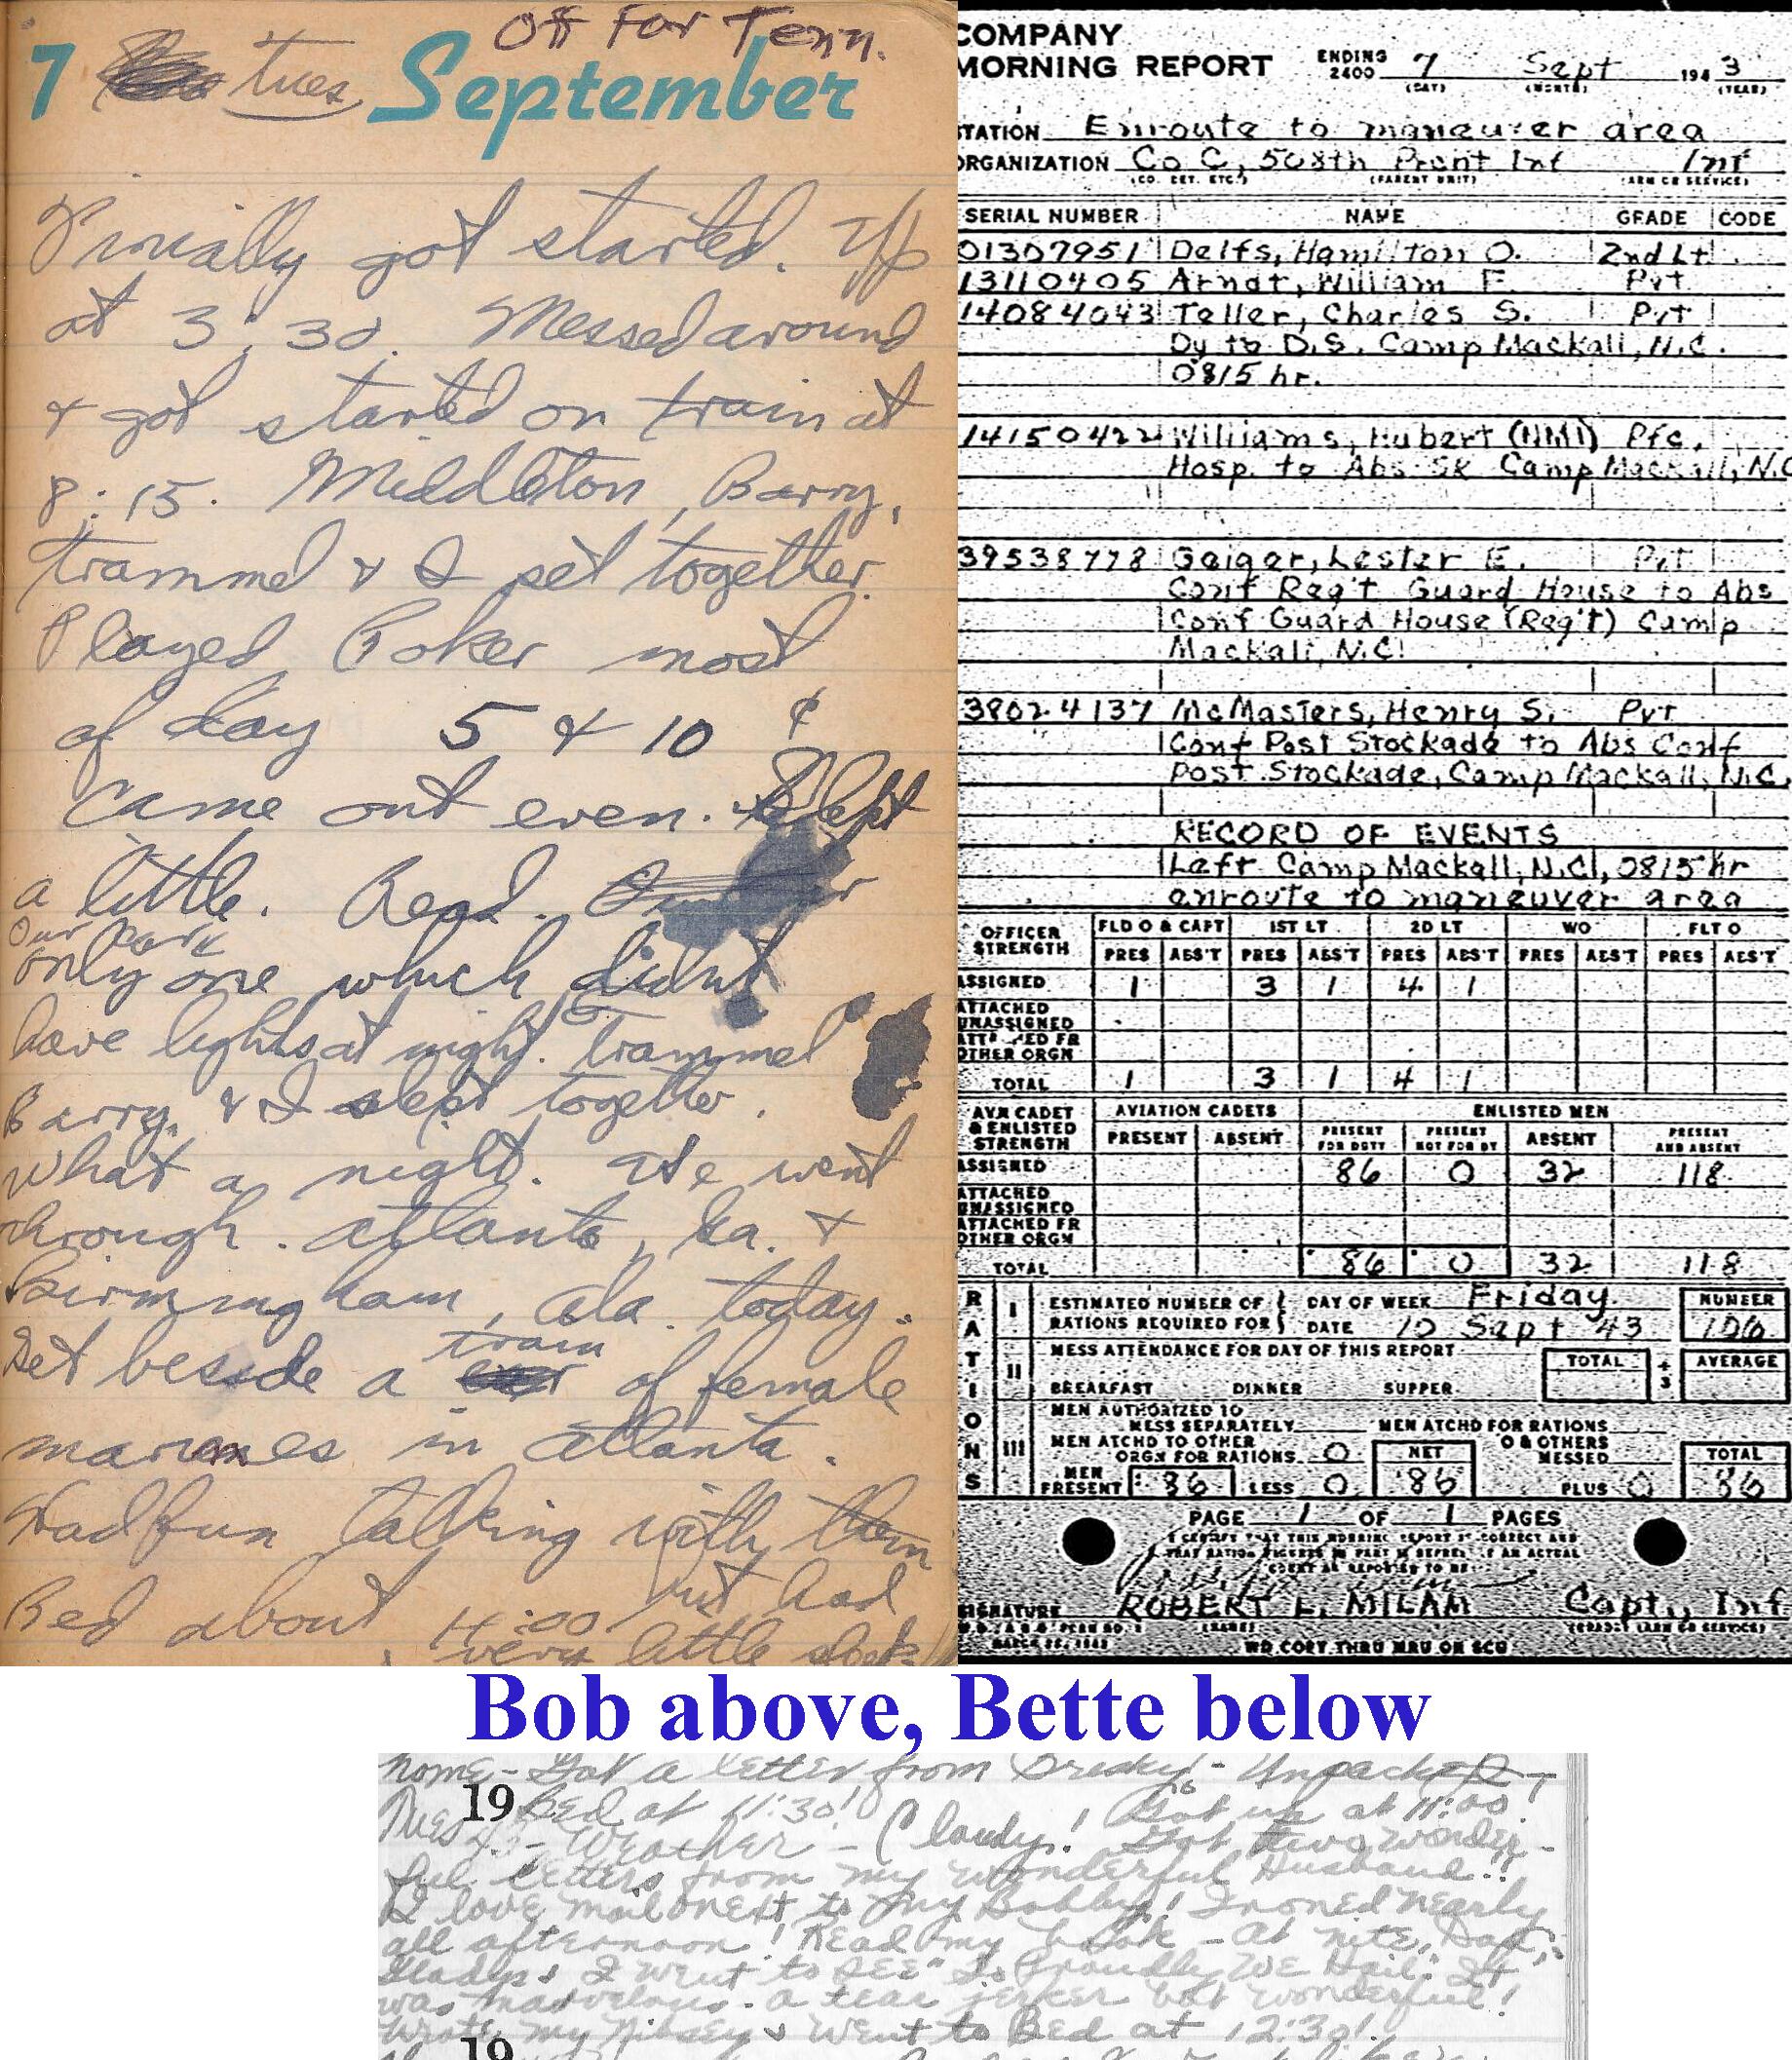 Off for Tenn.
7 Tues September
Finially got started. Up
at 3:30. Messed around
& got started on train at
8:15. Middleton, Barry,
Trammel & I set together.
Played Poker most
of day 5 & 10 ¢
Came out even. Slept
a little. Read.
Our Park
only one which didnt
have lights at night. Trammel
Barry, & I slept together.
What a night. We went
through Atlanta, Ga. &
Birmingham, Ala. today.
Set beside a train of female
marines in Atlanta.
Had fun talking with them
Bed about 11:00 but had
very little sleep.
COMPANY
MORNING REPORT ENDING 2400 7 Sept 1943
(DAY) (MONTH) (YEAR)
STATION Enroute to maneuver area
ORGANIZATION Co C, 508th Prcht Inf Inf
(CO. DET. ETC.) (PARENT UNIT) (ARM OR SERVICE)
SERIAL NUMBER NAME GRADE CODE
01307951 Delfs, Hamilton O. 2nd Lt
13110405 Arndt, William F. Pvt
14084043 Teller, Charles S. Pvt
Dy to D.S. Camp Mackall, N.C.
0815 hr.
14150422 Williams, Hubert (NMI) Pfc.
Hosp. to Abs Sk Camp Mackall, N.C
39538778 Gaiger, Lester E. Pvt
Conf Reg't Guard House to Abs
Conf Guard House (Reg't) Camp
Mackall, N.C.
38024137 McMasters, Henry S. Pvt
Conf Post Stockade to Abs Conf
Post Stockade, Camp Mackall, N.C.
RECORD OF EVENTS
Left Camp Mackall, N.C., 0815 hr
enroute to maneuver area
OFFICER STRENGTH FLD O & CAPT 1ST LT 2D LT WO FLT O
PRES ABS'T PRES ABS'T PRES ABS'T PRES ABS'T PRES ABS'T
ASSIGNED 1 3 1 4 1
ATTACHED UNASSIGNED
ATTACHED FR OTHER ORGN
TOTAL 1 3 1 4 1
AVN CADET & ENLISTED STRENGTH AVIATION CADETS ENLISTED MEN
PRESENT ABSENT PRESENT FOR DUTY PRESENT NOT FOR DY ABSENT PRESENT AND ABSENT
ASSIGNED 86 0 32 118
ATTACHED UNASSIGNED
ATTACHED FR OTHER ORGN
TOTAL 86 0 32 118
RATIONS
I ESTIMATED NUMBER OF RATIONS REQUIRED FOR DAY OF WEEK Friday NUMBER
DATE 10 Sept 43 106
II MESS ATTENDANCE FOR DAY OF THIS REPORT TOTAL ÷ 3 AVERAGE
BREAKFAST DINNER SUPPER
III MEN AUTHORIZED TO MESS SEPARATELY MEN ATCHD FOR RATIONS
MEN ATCHD TO OTHER ORGN FOR RATIONS 0 NET O & OTHERS MESSED TOTAL
MEN PRESENT 86 LESS 0 86 PLUS 0 86
PAGE 1 OF 1 PAGES
I CERTIFY THAT THIS MORNING REPORT IS CORRECT AND
SIGNATURE ROBERT L. MILAM Capt, Inf
(NAME) (GRADE) (ARM OR SERVICE)
WD COPY THRU MRU OR SCU
Bob above, Bette below
home - Got a letter from - Unpacked -
Bed at 11:30!
Tues 1943 - Weather - Cloudy! Got up at 11:00!
Got two wonder-
ful letters from my wonderful Husband!!
I love mail next to my Bobby! Ironed nearly
all afternoon! Read my book - At nite, Dad,
Gladys & I went to see "So Proudly We Hail." It
was marvelous - a tear jerker but wonderful!
Wrote my Nibsey & Went to Bed at 12:30!
19